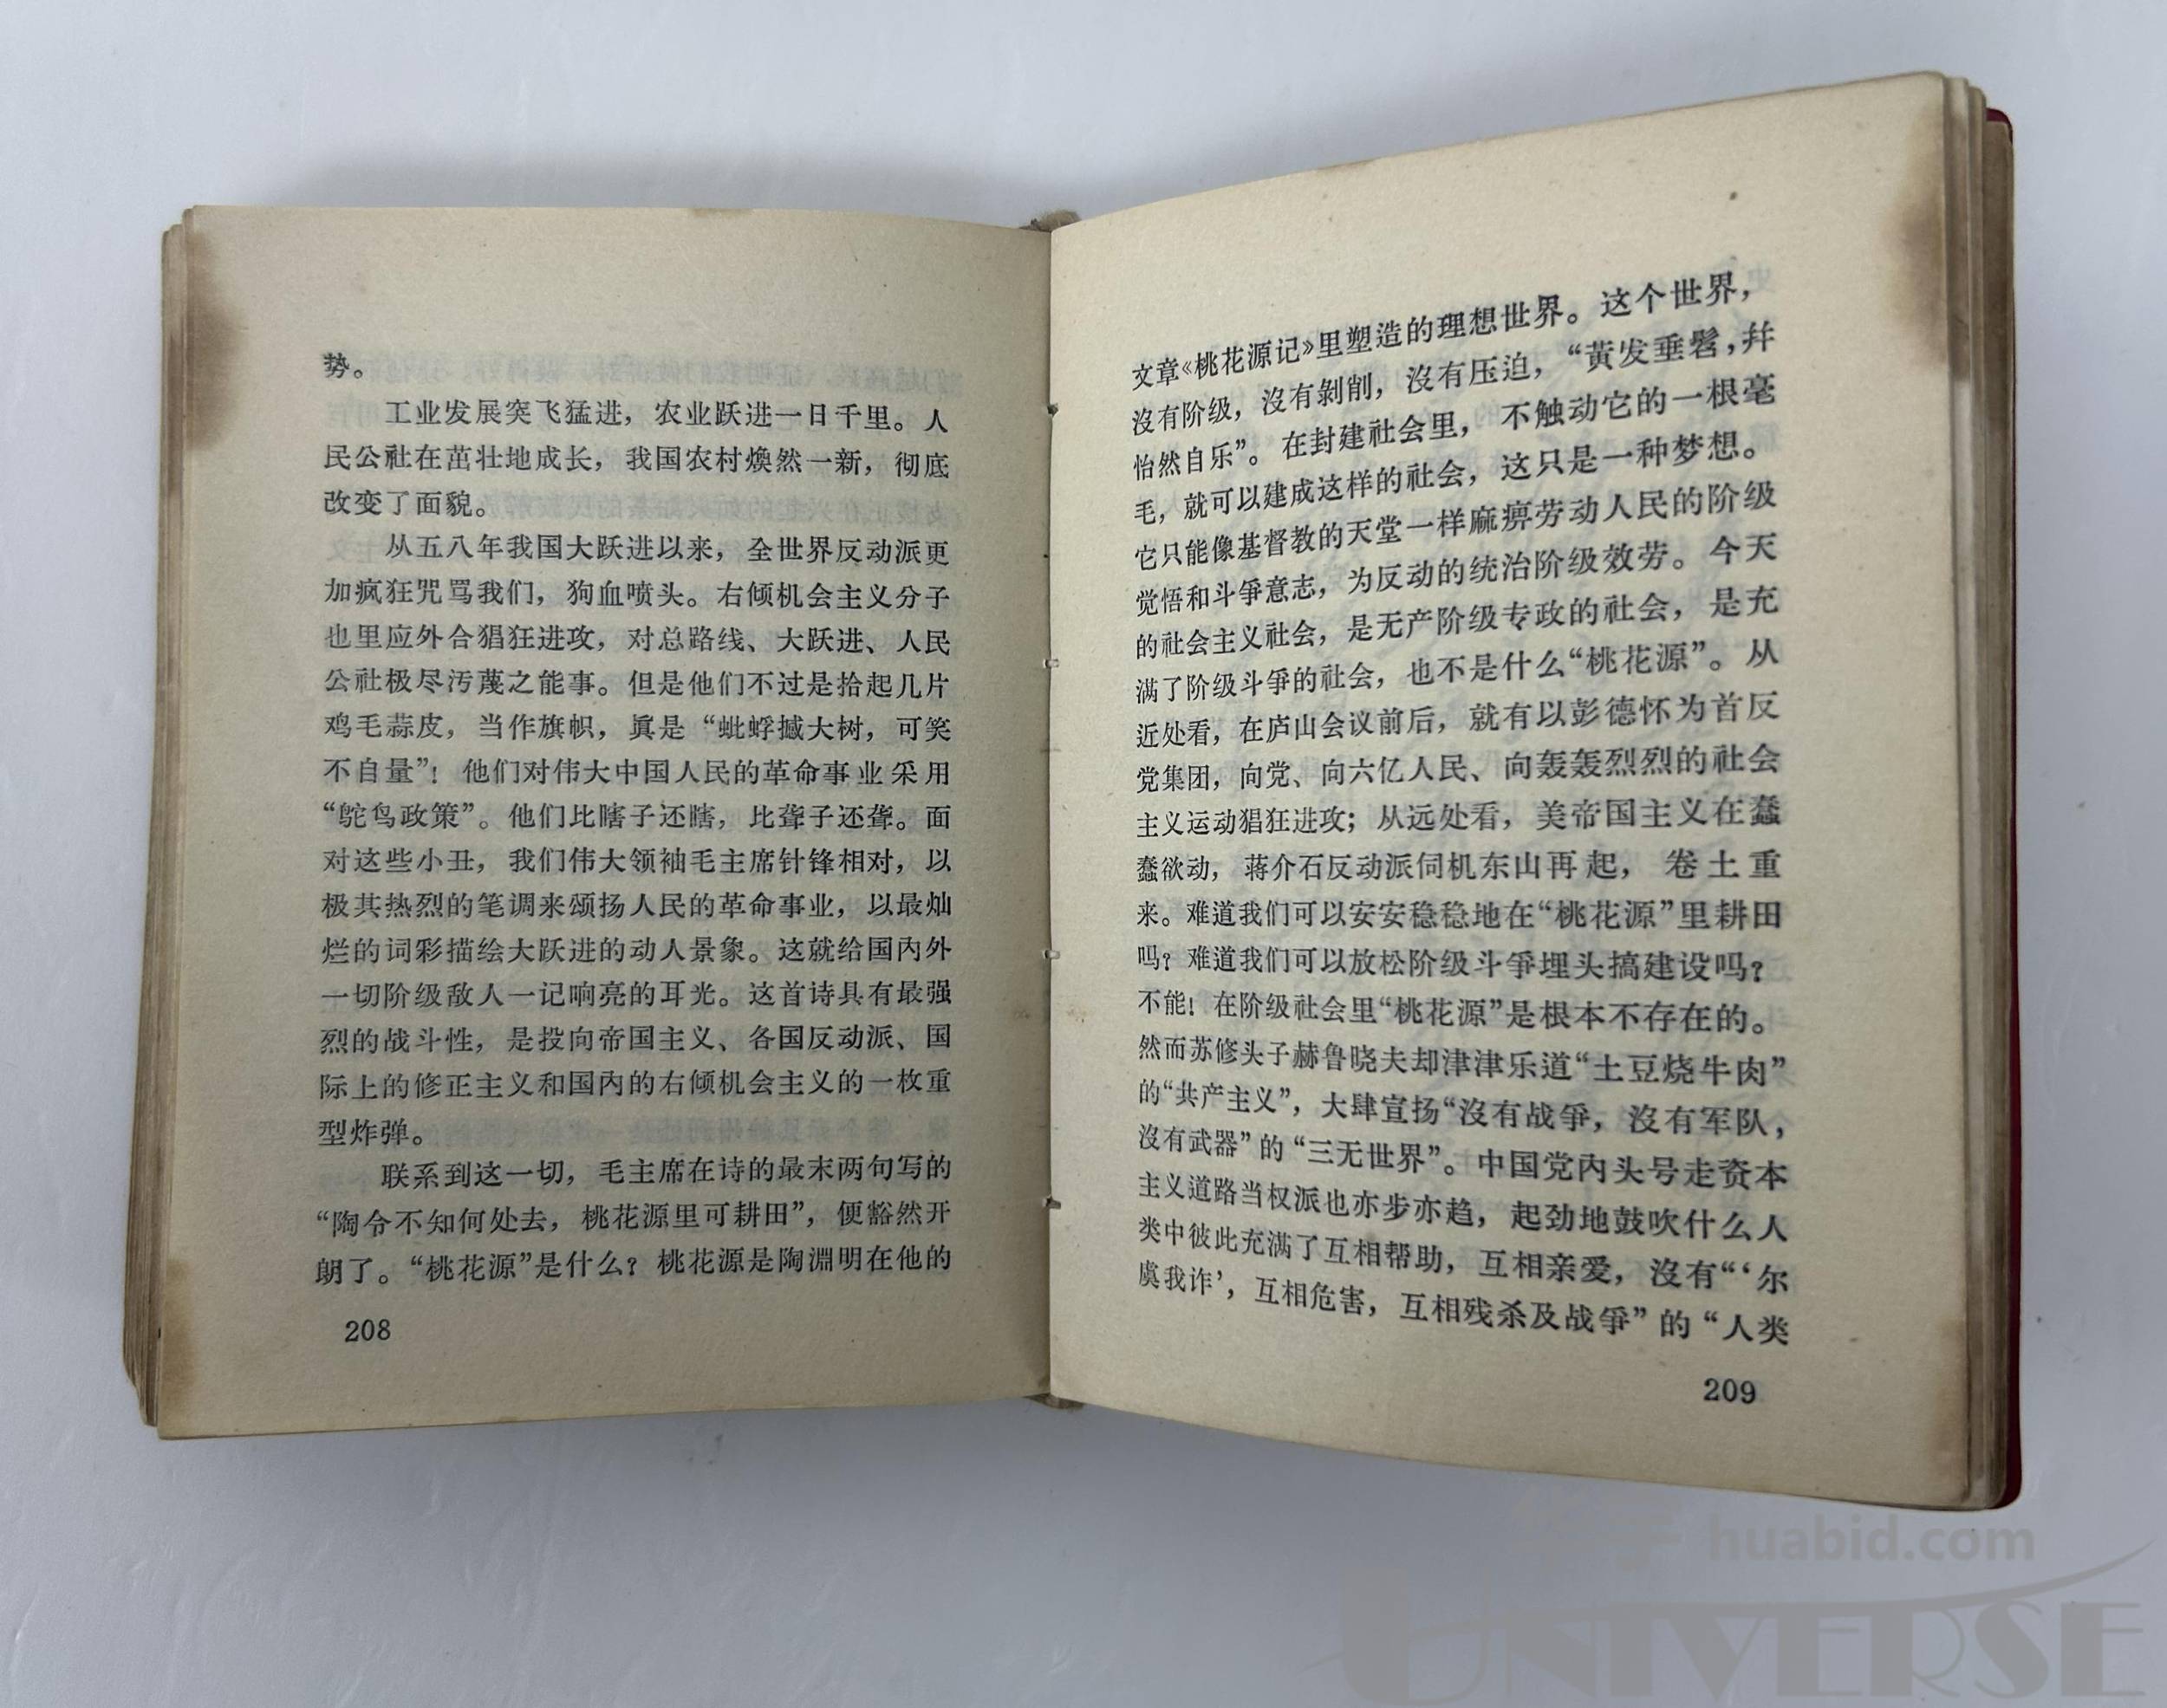 势。
工业发展突飞猛进，农业跃进一日千里。人
民公社在茁壮地成长，我国农村焕然一新，彻底
改变了面貌。
从五八年我国大跃进以来，全世界反动派更
加疯狂咒骂我们，狗血喷头。右倾机会主义分子
也里应外合猖狂进攻，对总路线、大跃进、人民
公社极尽污蔑之能事。但是他们不过是拾起几片
鸡毛蒜皮，当作旗帜，眞是“蚍蜉撼大树，可笑
不自量”！他们对伟大中国人民的革命事业采用
“鸵鸟政策”。他们比瞎子还瞎，比聋子还聋。面
对这些小丑，我们伟大领袖毛主席针锋相对，以
极其热烈的笔调来颂扬人民的革命事业，以最灿
烂的词彩描绘大跃进的动人景象。这就给国内外
一切阶级敌人一记响亮的耳光。这首诗具有最强
烈的战斗性，是投向帝国主义、各国反动派、国
际上的修正主义和国内的右倾机会主义的一枚重
型炸弹。
联系到这一切，毛主席在诗的最末两句写的
“陶令不知何处去，桃花源里可耕田”，便豁然开
朗了。“桃花源”是什么？桃花源是陶淵明在他的
208
文章《桃花源记》里塑造的理想世界。这个世界，
沒有阶级，沒有剝削，沒有压迫，“黄发垂髫，幷
怡然自乐”。在封建社会里，不触动它的一根毫
毛，就可以建成这样的社会，这只是一种梦想。
它只能像基督教的天堂一样麻痹劳动人民的阶级
觉悟和斗爭意志，为反动的统治阶级效劳。今天
的社会主义社会，是无产阶级专政的社会，是充
满了阶级斗爭的社会，也不是什么“桃花源”。从
近处看，在庐山会议前后，就有以彭德怀为首反
党集团，向党、向六亿人民、向轰轰烈烈的社会
主义运动猖狂进攻；从远处看，美帝国主义在蠢
蠢欲动，蒋介石反动派伺机东山再起，卷土重
来。难道我们可以安安稳稳地在“桃花源”里耕田
吗？难道我们可以放松阶级斗爭埋头搞建设吗？
不能！在阶级社会里“桃花源”是根本不存在的。
然而苏修头子赫鲁晓夫却津津乐道“土豆烧牛肉”
的“共产主义”，大肆宣扬“沒有战爭，沒有军队，
沒有武器”的“三无世界”。中国党内头号走资本
主义道路当权派也亦步亦趋，起劲地鼓吹什么人
类中彼此充满了互相帮助，互相亲爱，沒有“‘尔
虞我诈’，互相危害，互相残杀及战爭”的“人类
209
huabid.com
UNIVERSE